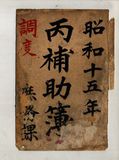 昭和十五年
丙補助簿
調度
庶務課